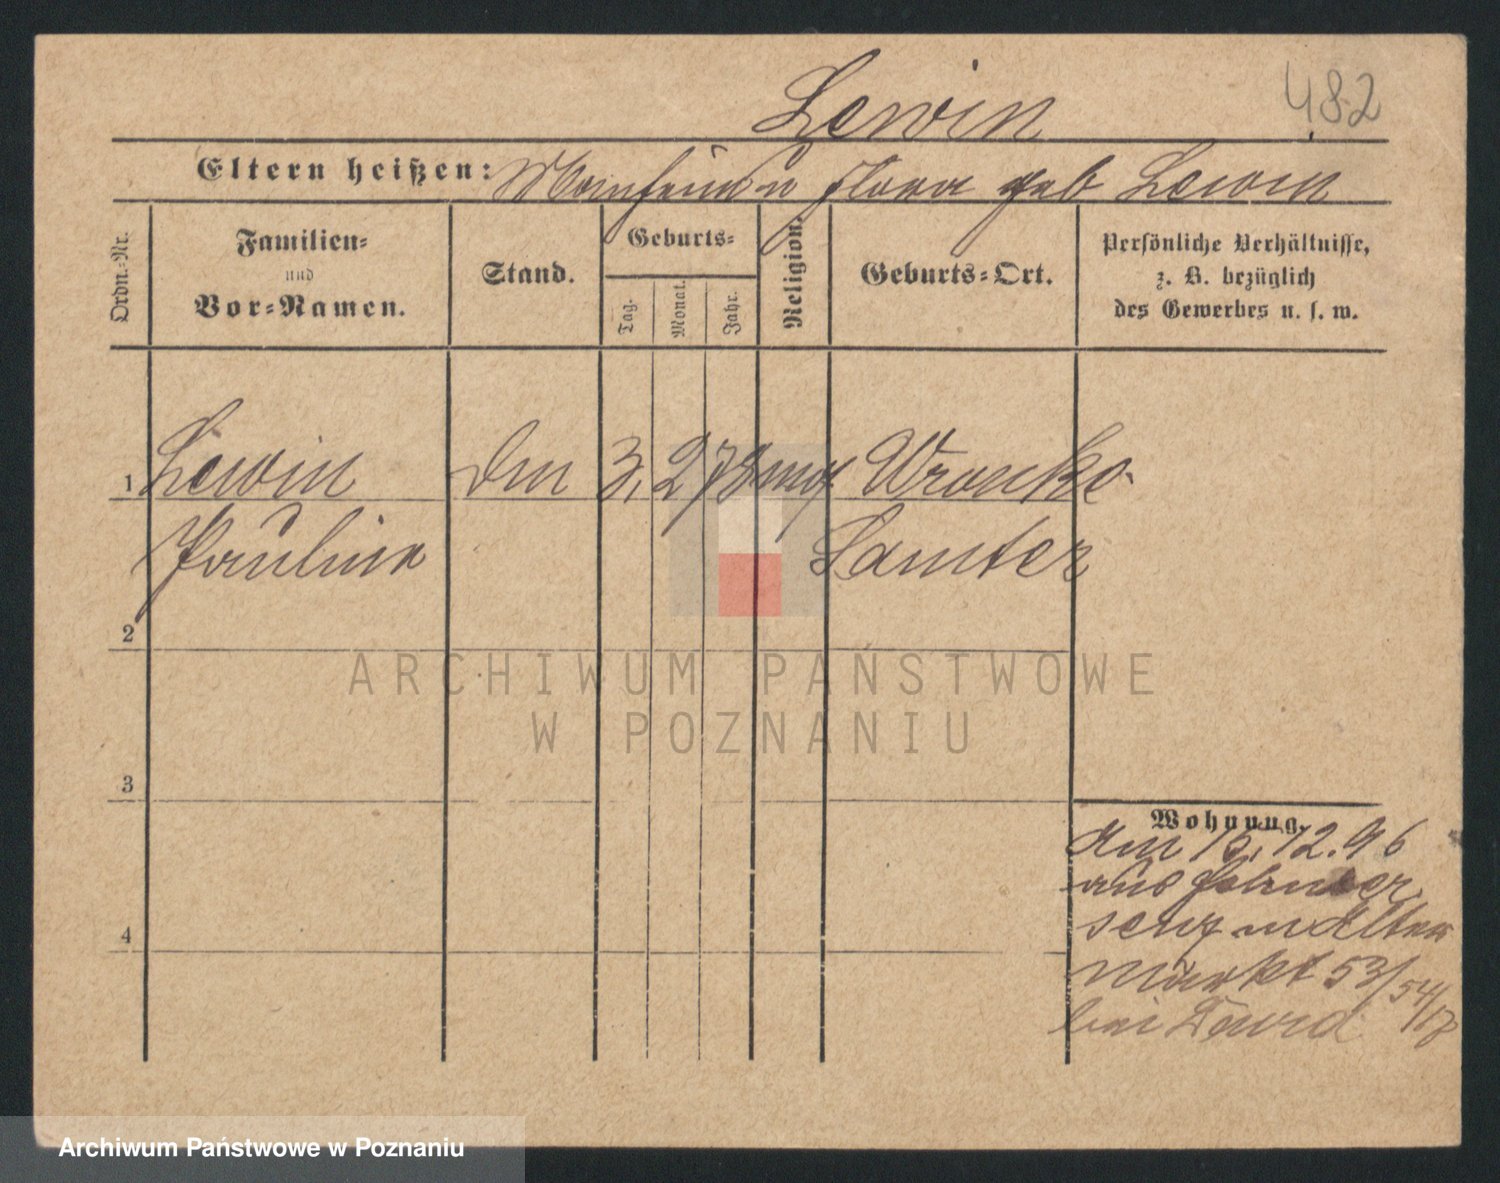 Lewin
482
Eltern heißen: Manheim u Flora geb Lewin
Ordn.-Nr.
Familien-
und
Vor-Namen.
Stand.
Geburts-
Tag.
Monat.
Jahr.
Religion.
Geburts-Ort.
Persönliche Verhältnisse,
z. B. bezüglich
des Gewerbes u. s. w.
1 Lewin 3. 2 78 mos Wronke
Pauline Samter
2
3
4
Wohnung.
am 15.12.96
aus
Alter
Markt 53/54/17
bei David
ARCHIWUM PAŃSTWOWE
W POZNANIU
Archiwum Państwowe w Poznaniu